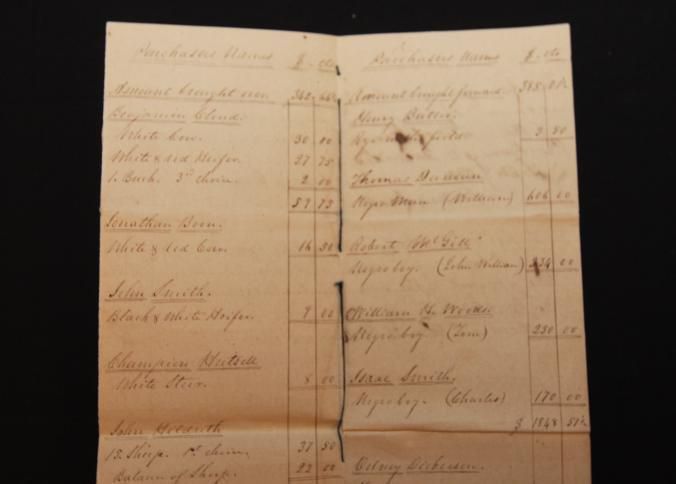 Purchasers Names $ cts
Amount brought over 342
Benjamin
White Cow. 30 00
White & red Heifer 27 75
1. Buck. 3rd choice. 2 00
59 75
Jonathan Boon.
White & red Cow. 16 50
John Smith.
Black & White Heifer. 9 00
Champion
White Steer. 8 00
John
15. Sheep. 1st choice. 37 50
Balance of Sheep. 22 00
Purchasers Names $ cts
Amount brought forward 585
Henry Butler
Rye in the field 3 80
Thomas
Negro Man (William) 606 00
Robert McGill
Negro boy. (John William) 234 00
William H. Woods.
Negro boy (Tom) 250 00
Isaac Smith.
Negro boy. (Charles) 170 00
$ 1848
Dickerson.